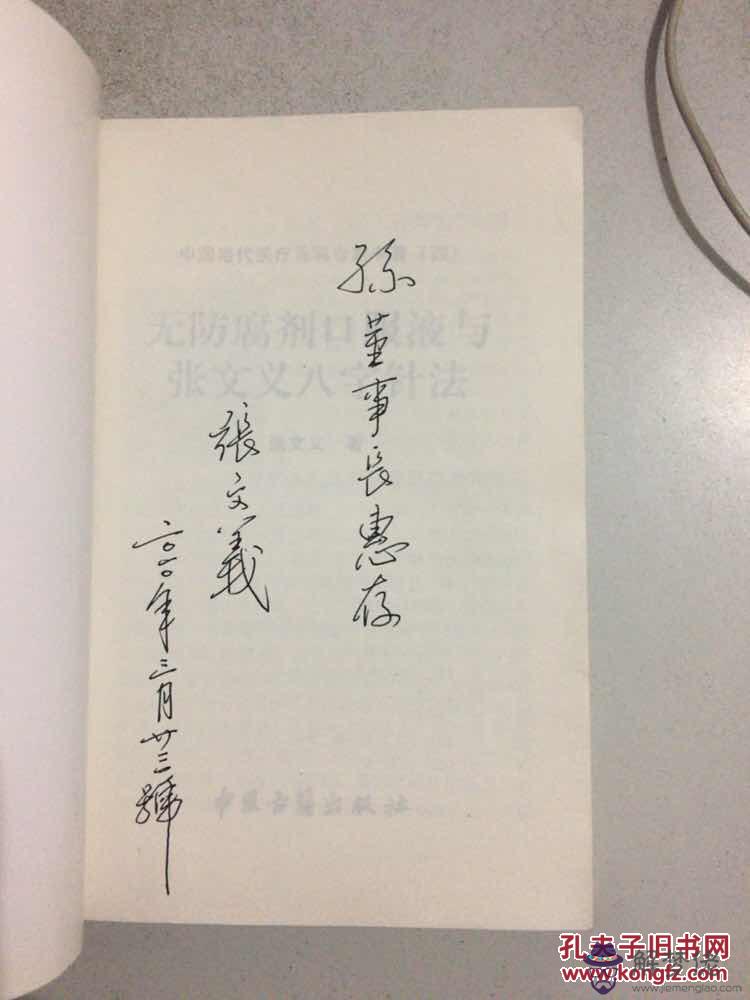 孫董事長惠存
張文義
二〇一〇年三月廿三號
无防腐剂口服液与
张文义八字针法
张文义 著
中医古籍出版社
孔夫子旧书网
www.kongfz.com
解梦佬
www.jiemenglao.com